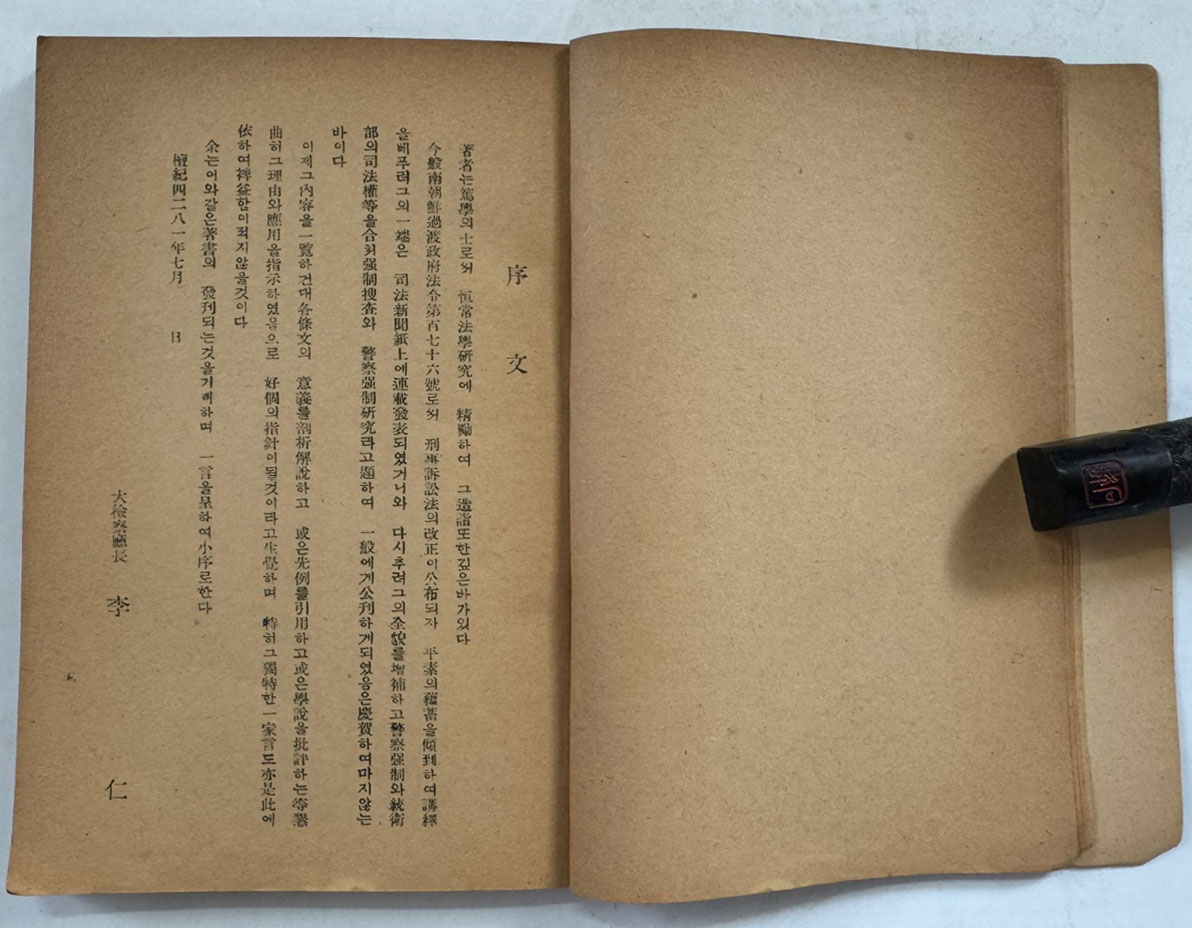 序文
著者는篤學의士로서 恒常法學硏究에 精勵하여 그造詣또한깊은바가있다
今般南朝鮮過渡政府法令第百七十六號로서 刑事訴訟法의改正이公布되자 平素의蘊蓄을傾到하여講釋
을베푸러그의一端은 司法新聞紙上에連載發表되였거니와 다시추려그의全貌를增補하고警察强制와統衛
部의司法權等을合처强制搜査와 警察强制硏究라고題하여 一般에게公刊하게되였음은慶賀하여마지않는
바이다
이제그內容을一覽하건대各條文의 意義를剖析解說하고 或은先例를引用하고或은學說을批評하는等懇
曲히그理由와應用을指示하였음으로 好個의指針이될것이라고生覺하며 特히그獨特한一家言도亦是此에
依하여裨益함이적지않을것이다
余는이와같은著書의 發刊되는것을기뻐하며 一言을呈하여小序로한다
檀紀四二八一年七月 日
大檢察廳長 李仁